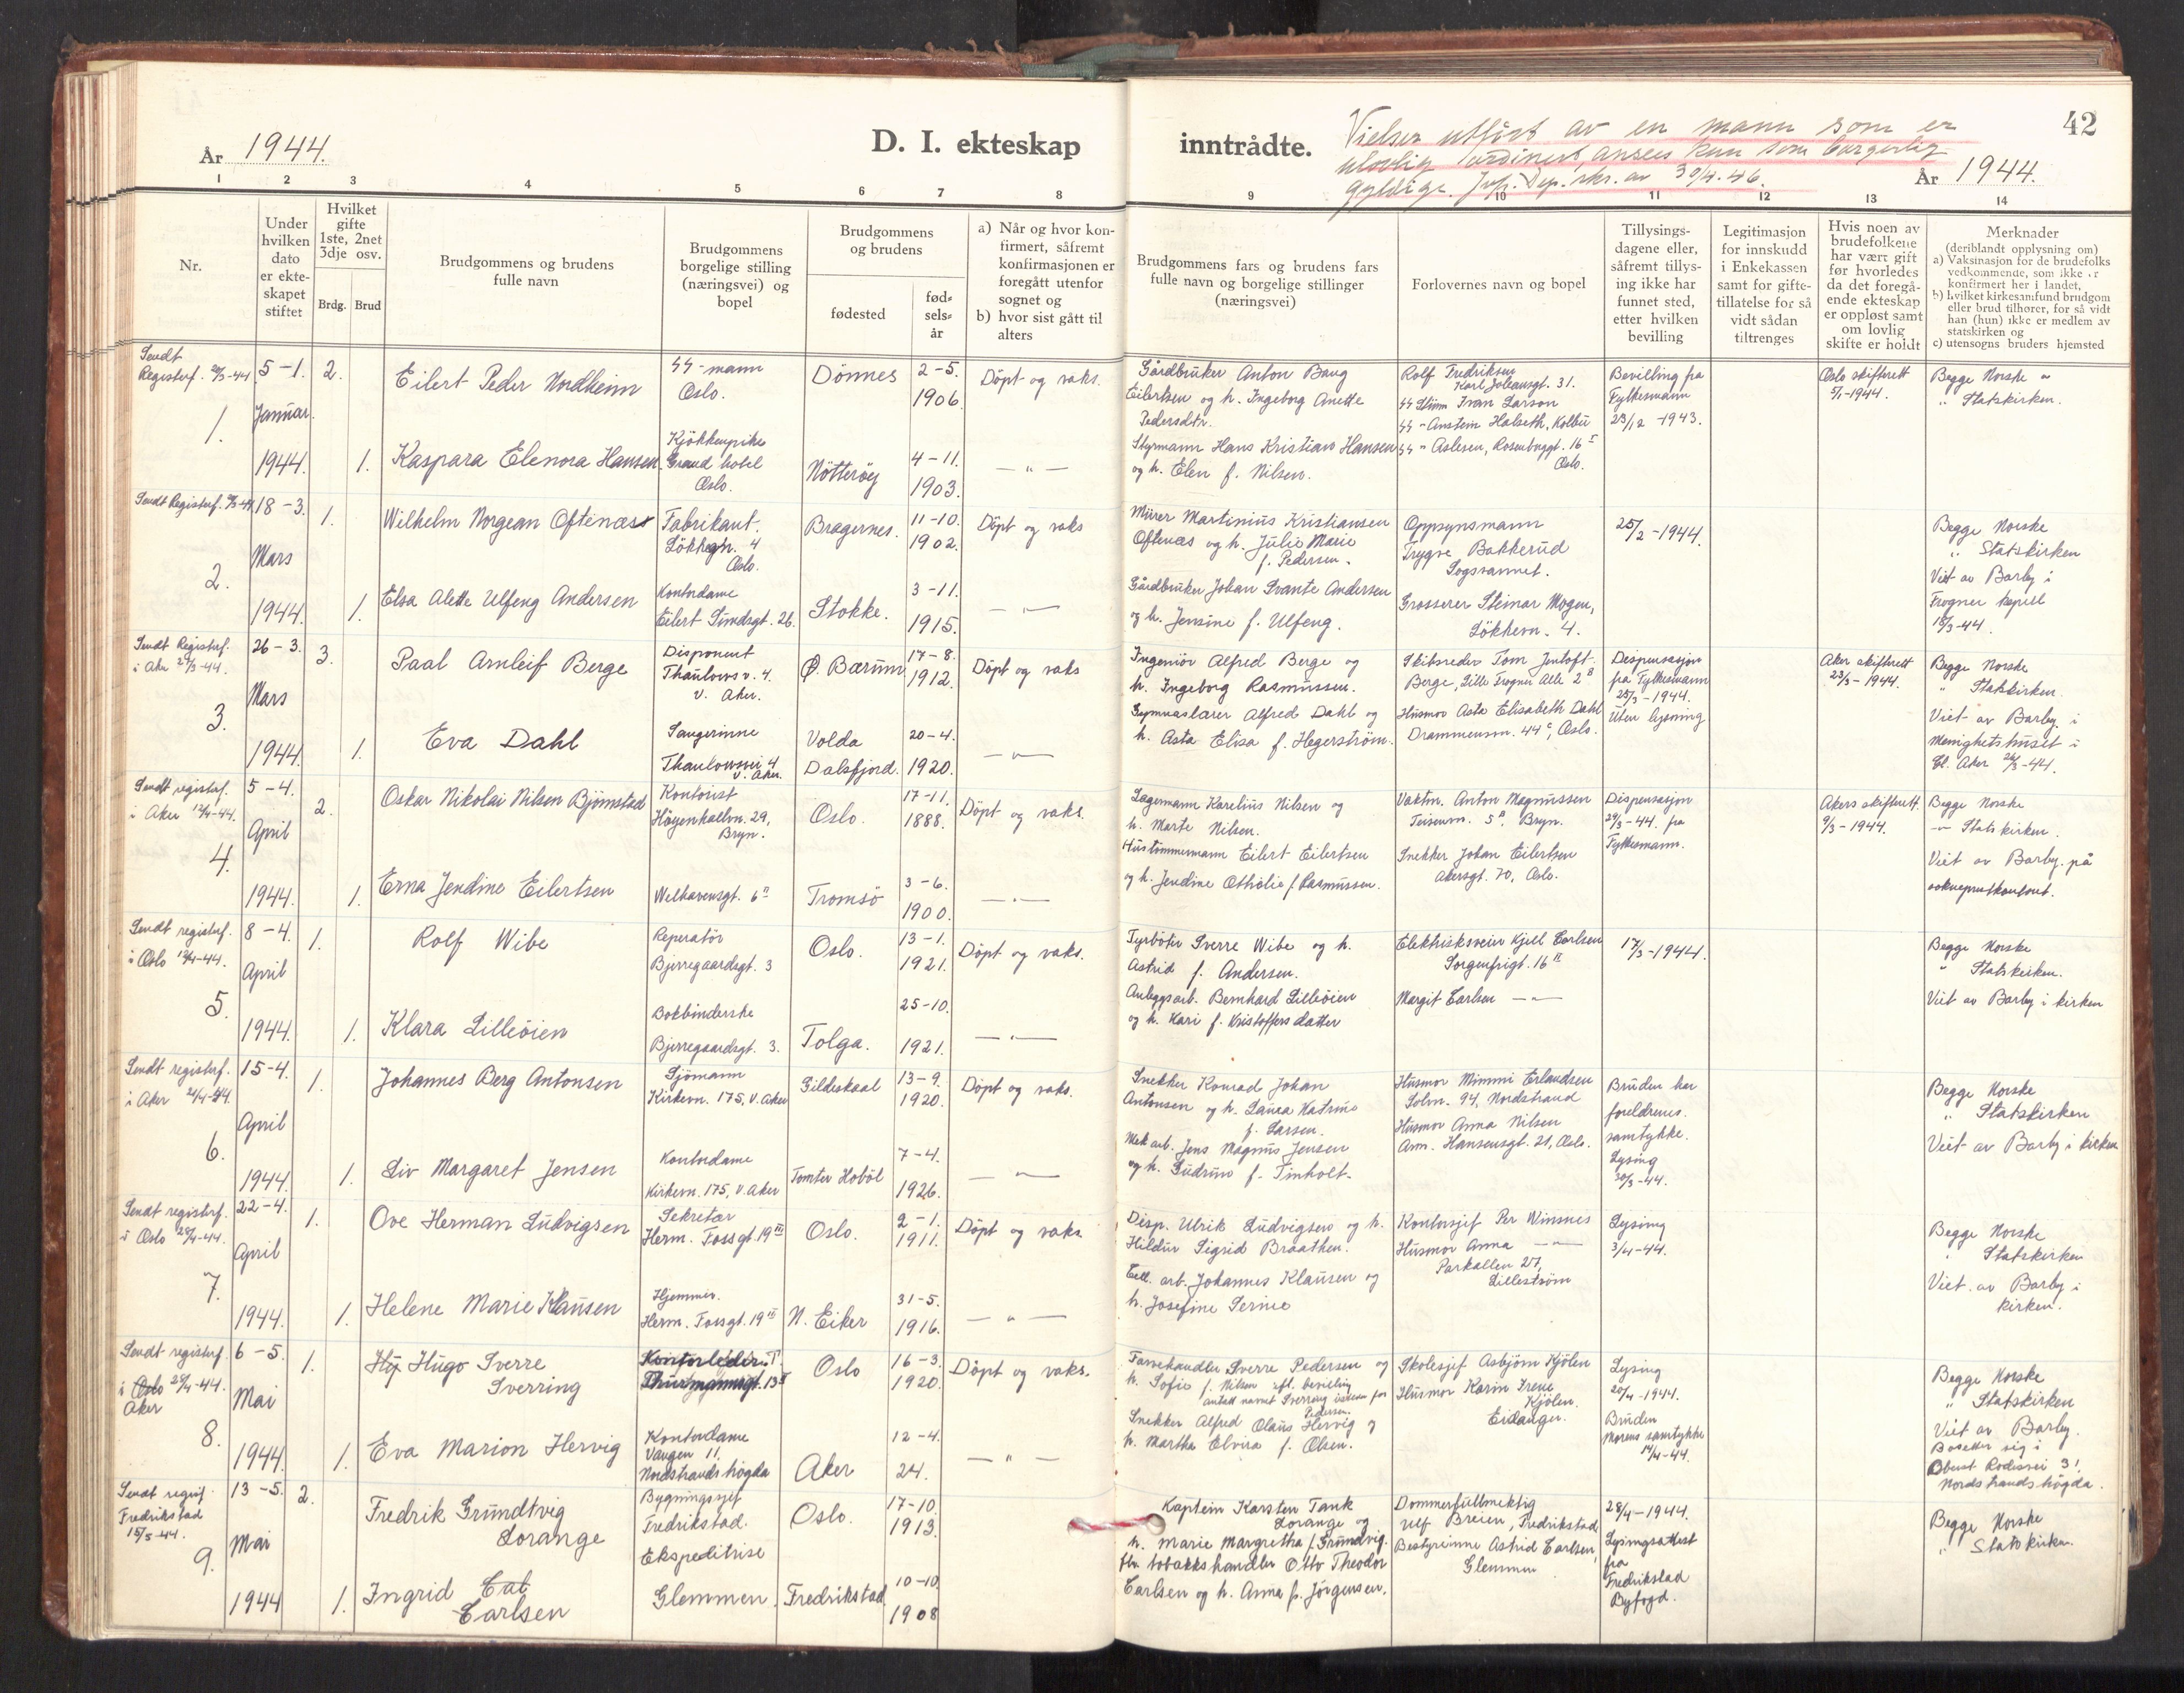 År 1944.
D. I. ekteskap
inntrådte.
Vielser utført av en mann som er
ulovlig ordinert, ansees kun som borgerlig
gyldige. Jvf. Dep. skr. av 30/4.46.
42
År 1944.
1 2 3 4 5 6 7 8 9 10 11 12 13 14
Nr.
Under hvilken dato er ekteskapet stiftet
Hvilket gifte 1ste, 2net 3dje osv.
Brdg. Brud
Brudgommens og brudens fulle navn
Brudgommens borgelige stilling (næringsvei) og bopel
Brudgommens og brudens
fødested
fødselsår
a) Når og hvor konfirmert, såfremt konfirmasjonen er foregått utenfor sognet og
b) hvor sist gått til alters
Brudgommens fars og brudens fars fulle navn og borgelige stillinger (næringsvei)
Forlovernes navn og bopel
Tillysingsdagene eller, såfremt tillysing ikke har funnet sted, etter hvilken bevilling
Legitimasjon for innskudd i Enkekassen samt for giftetillatelse for så vidt sådan tiltrenges
Hvis noen av brudefolkene har vært gift før hvorledes da det foregående ekteskap er oppløst samt om lovlig skifte er holdt
Merknader
(deriblandt opplysning om)
a) Vaksinasjon for de brudefolks vedkommende, som ikke er konfirmert her i landet,
b) hvilket kirkesamfund brudgom eller brud tilhører, for så vidt han (hun) ikke er medlem av statskirken og
c) utensogns bruders hjemsted
Sendt
Registerf. 20/3-44
1.
5-1.
Januar.
1944.
2.
Eilert Peder Nordheim
SS-mann
Oslo.
Dönnes
2-5.
1906.
Döpt og vaks.
Gårdbruker Anton Baug
Eilertsen og h. Ingeborg Anette
Pedersdtr.
Rolf Fredriksen
Karl Johansgt. 31.
SS Stum Ivan Larson
SS " Anstein Halseth, Kolbu
SS " Aslesen, Rosenborggt. 16 I
Oslo.
Bevilling fra
Fylkesmann
23/12-1943.
Oslo skifterett
5/1-1944.
Begge Norske
" Statskirken.
1.
Kaspara Elenora Hansen
Kjökkenpike
Grand hotel
Oslo.
Nötteröy
4-11.
1903.
- " -
Styrmann Hans Kristian Hansen
og h. Elen f. Nilsen.
Sendt Registerf.
2.
18-3.
Mars
1944.
1.
Wilhelm Norgean Oftenæs
Fabrikant.
Lökkegn. 4
Oslo.
Bragernes.
11-10.
1902.
Döpt og vaks
Murer Martinius Kristiansen
Oftenæs og h. Julie Marie
f. Pedersen.
Oppsynsmann
Trygve Bakkerud
Sogsvannet.
25/2-1944.
Begge Norske
" Statskirken
Viet av Barby i
Frogner kapell
18/3-44.
1.
Elsa Alette Ulfeng Andersen
Kontordame
Eilert Sundsgt. 26.
Stokke.
3-11.
1915.
- " -
Gårdbruker Johan Svante Andersen
og h. Jensine f. Ulfeng.
Grosserer Steinar Mogen,
Lökkevn. 4.
Sendt Registerf.
i Aker 27/3-44.
3.
26-3.
Mars
1944.
3.
Paal Arnleif Berge
Disponent
Thaulows v. 4.
V. Aker.
Ø. Bærum
17-8.
1912.
Döpt og vaks
Ingeniör Alfred Berge og
h. Ingeborg Rasmussen.
Skibsreder Tom Jentoft
Berge, Lille Frogner Alle 2 B
Dispensasjon
fra Fylkesmann
25/3-1944.
Uten lysning
Aker skifterett
23/3-1944.
Begge Norske
" Statskirken.
Viet av Barby. i
Menighetshuset i
Gl. Aker 26/3-44.
1.
Eva Dahl
Sangerinne
Thaulowsvei 4
V. Aker.
Volda
Dalsfjord.
20-4.
1920.
- " -
Gymnaslærer Alfred Dahl og
h. Asta Elisa f. Hegerström.
Husmor Asta Elisabeth Dahl
Drammensvn. 44 c, Oslo.
Sendt registerf.
i Aker 12/4-44.
4.
5-4.
April
1944.
2.
Oskar Nikolai Nilsen Björnstad
Kontorist
Höyenhallvn. 29,
Bryn.
Oslo.
17-11.
1888.
Döpt og vaks.
Lagermann Karelius Nilsen og
h. Marte Nilsen.
Vaktm. Anton Magnussen
Teisenvn. 5 A. Bryn.
Dispensasjon
29/3-44. fra
Fylkesmann.
Akers skifterett.
9/3-1944.
Begge Norske
-"- Statskirken.
Viet av Barby. på
sokneprestkontoret.
1.
Erna Jendine Eilertsen
Welhavensgt. 6 II
Tromsö
3-6.
1900.
- " -
Hustömmermann Eilert Eilertsen
og h. Jendine Othilie f. Rasmussen.
Snekker Johan Eilertsen
Akersgt. 70, Oslo.
Sendt registerf.
i Oslo 12/4-44.
5.
8-4.
April
1944.
1.
Rolf Wibe
Reperatör
Bjerregaardsgt. 3
Oslo.
13-1.
1921.
Döpt og vaks.
Fyrböter Sverre Wibe og h.
Astrid f. Andersen.
Elektrisksveiser Kjell Carlsen
Sorgenfrigt. 16 II
17/3-1944.
Begge Norske
" Statskirken.
Viet av Barby i kirken
1.
Klara Lilleöien
Bokbinderske
Bjerregaardsgt. 3.
Tolga.
25-10.
1921.
- " -
Anleggsarb. Bernhard Lilleöien
og h. Kari f. Kristoffersdatter
Margit Carlsen - " -
Sendt registerf.
i Aker 21/4-44.
6.
15-4.
April
1944.
1.
Johannes Berg Antonsen
Sjömann
Kirkevn. 175, V. Aker
Gildeskaal
13-9.
1920.
Döpt og vaks.
Snekker Konrad Johan
Antonsen og h. Laura Katrine
f. Larsen.
Husmor Mimmi Erlandsen
Solvn. 94, Nordstrand
Husmor Anna Nilsen
Arm. Hansensgt. 21, Oslo.
Bruden har
foreldrenes.
samtykke.
Lysing
30/3-44.
Begge Norske
" Statskirken
Viet av Barby i kirken
1.
Liv Margaret Jensen
Kontordame
Kirkevn. 175, V. Aker
Tomter Hobøl
7-4.
1926.
- " -
Mek arb. Jens Magnus Jensen
og h. Gudrun f. Tinholt.
Sendt registerf.
i Oslo 28/4-44.
7.
22-4.
April
1944.
1.
Ove Herman Ludvigsen
Sekretær
Herm. Fossgt. 19 III
Oslo.
2-1.
1911.
Döpt og vaks.
Disp. Ulrik Ludvigsen og h.
Hildur Sigrid Braathen.
Kontorsjef Per Winsnes
Husmor Anna - " -
Parkalleen 27,
Lilleström
Lysing
3/4-44.
Begge Norske
" Statskirken
Viet av Barby i
kirken.
1.
Helene Marie Klausen
Hjemmev.
Herm. Fossgt. 19 III
N. Eiker
31-5.
1916.
- " -
Cell. arb. Johannes Klausen og
h. Josefine Serine
Sendt registerf.
i Oslo 29/4-44.
Aker
8.
6-5.
Mai
1944.
1.
Hj Hugo Sverre
Sverring
Kontorleder T.
Thurmannsgt. 13 II
Oslo
16-3.
1920.
Döpt og vaks.
Farvehandler Sverre Pedersen og
h. Sofie f. Nilsen. iflg. bevilling
antatt navnet Sverring istedenfor
Pedersen.
Skolesjef Asbjörn Kjölen
Husmor Karin Irene
Kjölen.
Eidanger.
Lysing
20/4-1944.
Bruden
Morens samtykke
14/4-44.
Begge Norske
" Statskirken
Viet av Barby.
Bosetter sig i
Oberst Rodesvei 31
Nordstrandshögda.
1.
Eva Marion Hervig
Kontordame
Vangen 11.
Nordstrandshögda
Aker
12-4.
24.
- " -
Snekker Alfred Olaus Hervig og
h. Martha Elvira f. Olsen.
Sendt regist.
Fredrikstad
15/5-44.
9.
13-5.
Mai
1944
2.
Fredrik Grundtvig
Lorange
Bygningssjef
Fredrikstad.
Oslo.
17-10.
1913.
Kaptein Karsten Tank
Lorange og
h. Marie Margretha f. Grundvig.
Dommerfullmektig
Ulf Breien, Fredrikstad
Bestyrerinne Astrid Carlsen,
Glemmen
28/4-1944.
Lysingsattest
fra
Fredrikstad
Byfogd.
Begge Norske
" Statskirken.
1.
Ingrid Cal
Carlsen
Ekspeditrise
Glemmen.
Fredrikstad
10-10.
1908
fhv. tobakkshandler Otto Theodor
Carlsen og h. Anna f. Jörgensen.